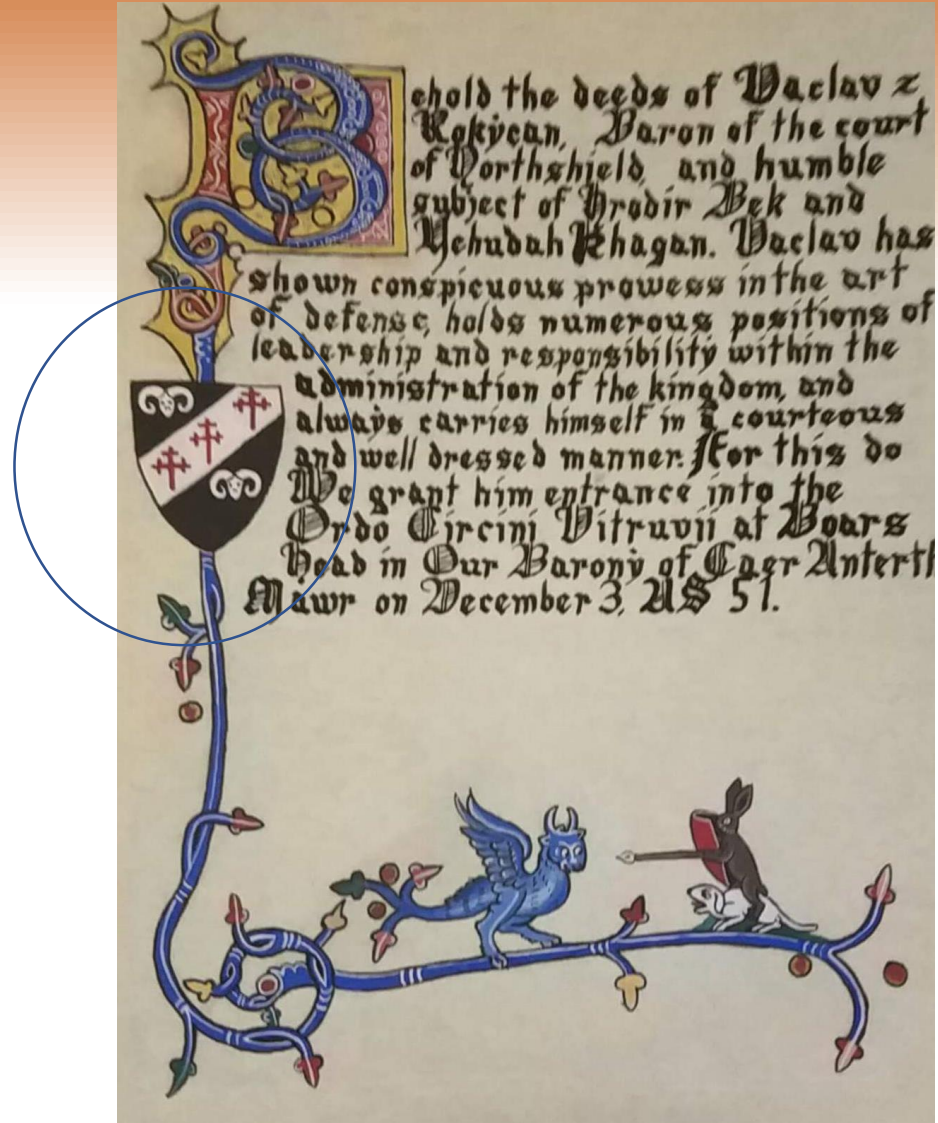 Behold the deeds of Vaclav z
Rokycan, Baron of the court
of Northshield, and humble
subject of Hrodir Bek and
Yehudah Khagan. Vaclav has
shown conspicuous prowess in the art
of defense, holds numerous positions of
leadership and responsibility within the
administration of the kingdom, and
always carries himself in a courteous
and well dressed manner. For this do
We grant him entrance into the
Ordo Circini Vitruvii at Boars
Head in Our Barony of Caer Anterth
Mawr on December 3, AS 51.